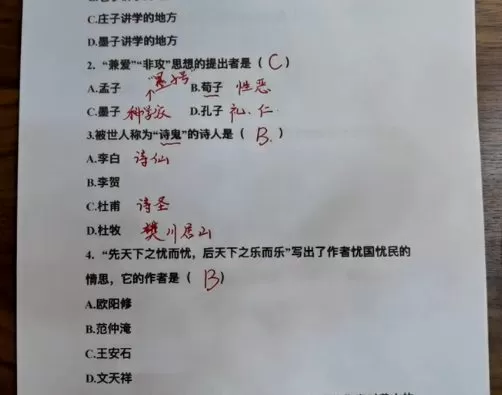 C.庄子讲学的地方
D.墨子讲学的地方
2.“兼爱”“非攻”思想的提出者是（ C ）
A.孟子 B.荀子 性恶
C.墨子 科学家 D.孔子 礼、仁
3.被世人称为“诗鬼”的诗人是（ B. ）
A.李白 诗仙
B.李贺
C.杜甫 诗圣
D.杜牧 樊川居山
4.“先天下之忧而忧，后天下之乐而乐”写出了作者忧国忧民的
情思，它的作者是（ B ）
A.欧阳修
B.范仲淹
C.王安石
D.文天祥